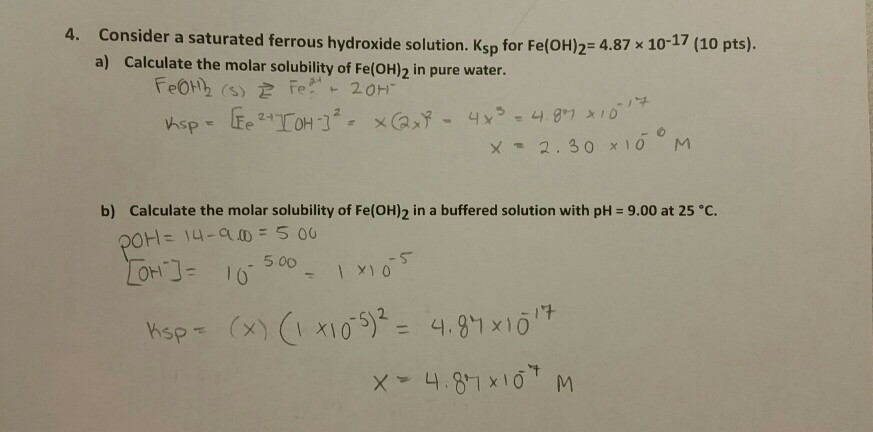 4. Consider a saturated ferrous hydroxide solution. Ksp for Fe(OH)2= 4.87 × 10-17 (10 pts).
a) Calculate the molar solubility of Fe(OH)2 in pure water.
Fe(OH)2 (s) ⇌ Fe2+ + 2OH-
Ksp = [Fe2+][OH-]2 = x(2x)2 = 4x3 = 4.87 x10-17
x = 2.30 x10-6 M
b) Calculate the molar solubility of Fe(OH)2 in a buffered solution with pH = 9.00 at 25 °C.
pOH= 14-9.00 = 5.00
[OH-]= 10-5.00 = 1 x10-5
Ksp = (x) (1 x10-5)2 = 4.87x10-17
x = 4.87x10-7 M